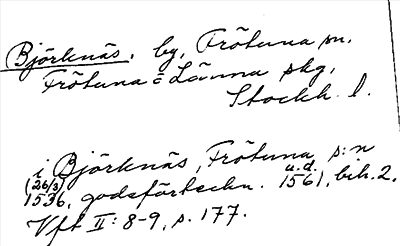 Björknäs, by, Frötuna sn,
Frötuna o Länna skg,
Stockh. l.
i Björknäs, Frötuna s:n
(26/3) u.d.
1536, godsförteckn. 1561, bih. 2.
Vft II: 8-9, s. 177.